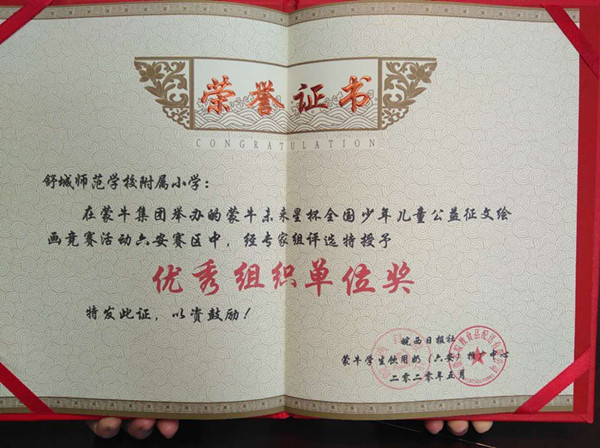 荣誉证书
CONGRATULATION
舒城师范学校附属小学：
在蒙牛集团举办的蒙牛未来星杯全国少年儿童公益征文绘
画竞赛活动六安赛区中，经专家组评选特授予
优秀组织单位奖
特发此证，以资鼓励！
皖西日报社
蒙牛学生饮用奶（六安）推广中心
二零二零年五月